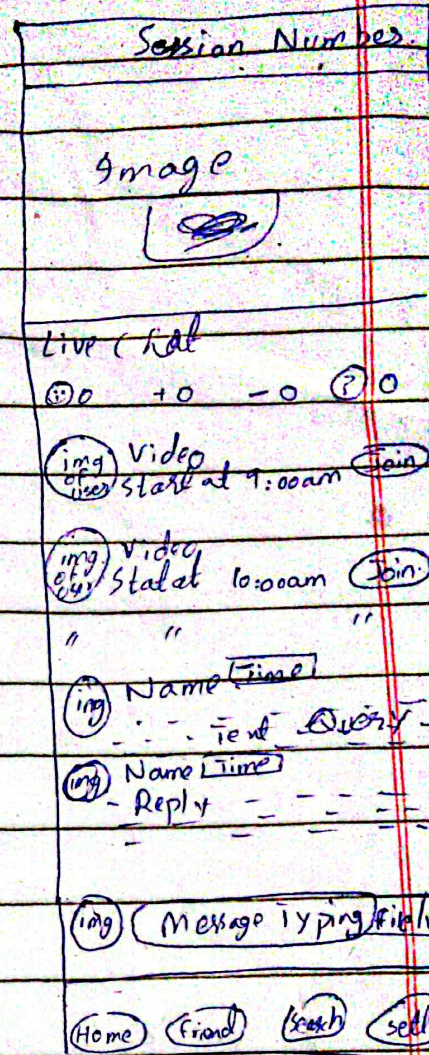 Session Number.
Image
Live Chat
0 +0 -0 ? 0
img of user Video
Start at 9:00am Join
img of Video
Stat at 10:00am Join.
" " "
img Name Time
Text Query
img Name Time
Reply
img Message Typing
Home Friend Search Sett